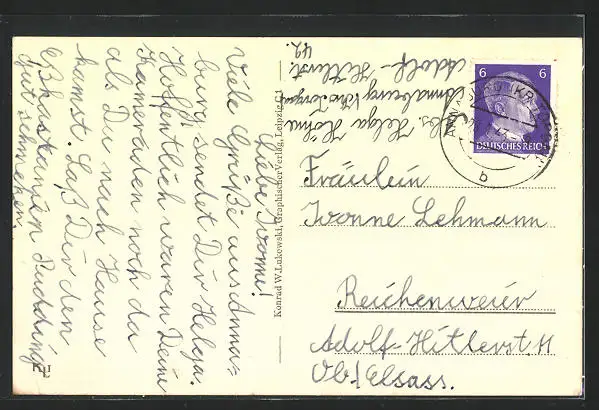 Liebe Ivonne!
Viele Grüße aus Anna=
burg sendet Dir Helga.
Hoffentlich waren Deine
Kameraden noch da
als Du nach Hause
kamst. Laß Dir den
Eßkastanien Pudding
gut schmecken
Abs. Helga Höhne
Annaburg
Adolf-Hitlerst.
49.
Konrad W. Lukowski, Graphischer Verlag, Leipzig C 1
6 6
DEUTSCHES REICH
b
Fräulein
Ivonne Lehmann
Reichenweier
Adolf-Hitlerst. 11
Ob./Elsass.